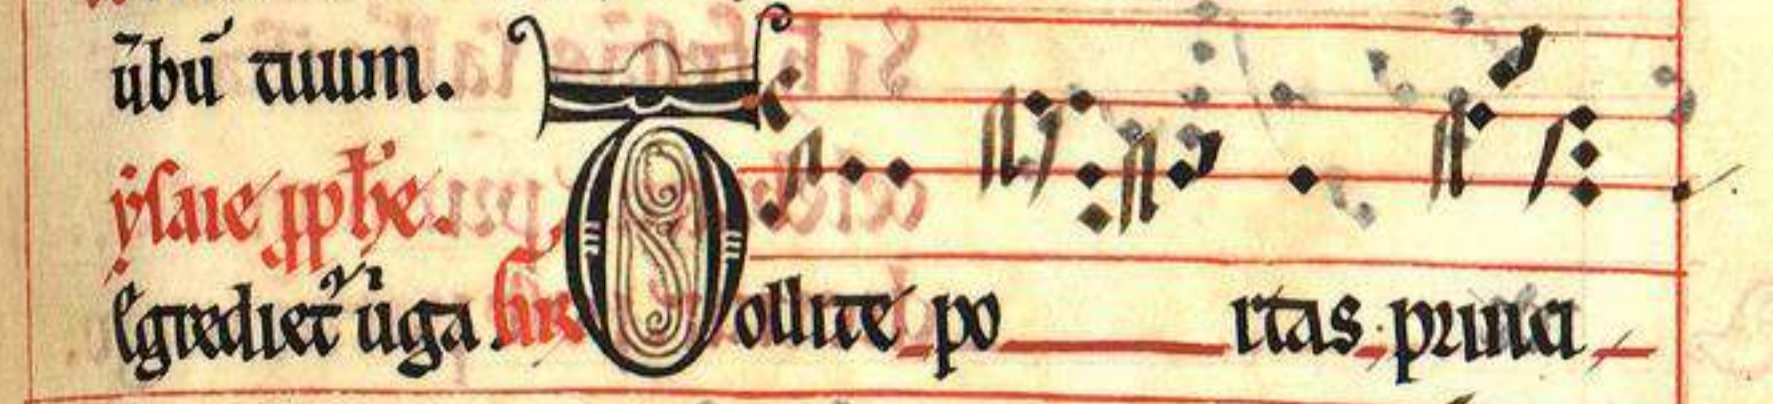 ũbũ tuum.
ysaie ꝓphẽ.
Egrediet᷑ uͥga
Tollite portas. princi